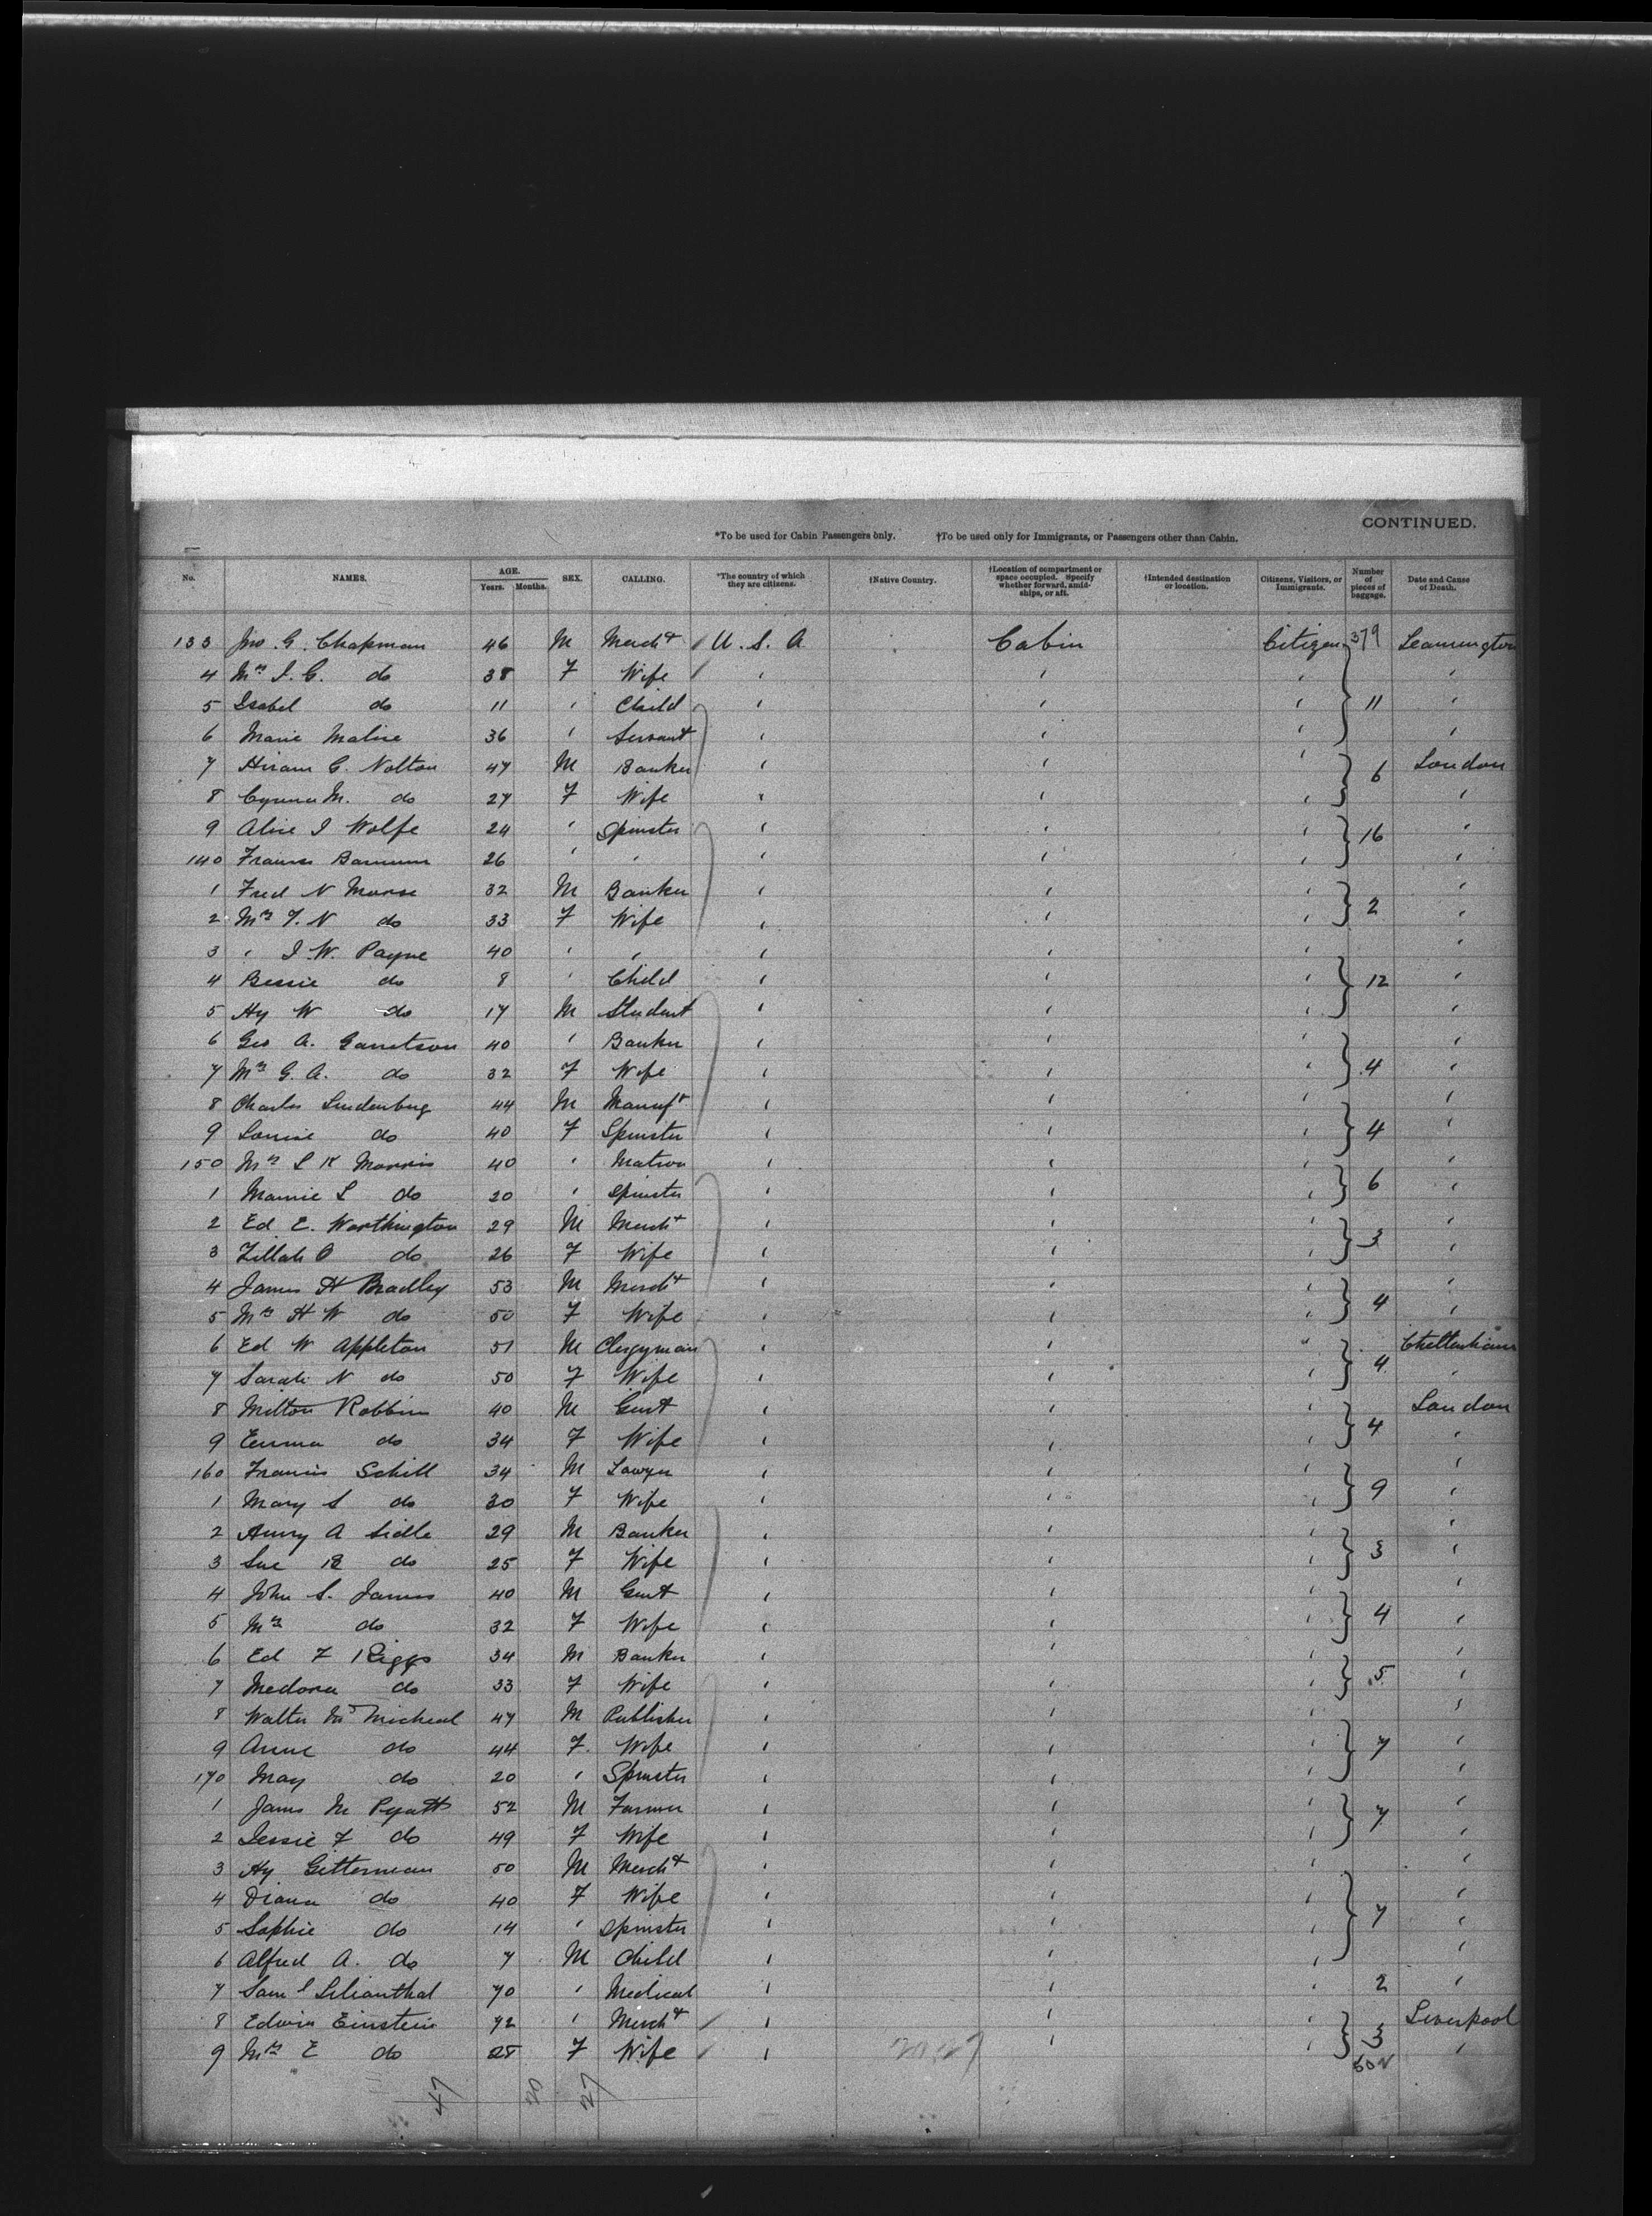 CONTINUED.
*To be used for Cabin Passengers only. †To be used only for Immigrants, or Passengers other than Cabin.
No. NAMES. AGE. Years. Months. SEX. CALLING. *The country of which they are citizens. †Native Country. †Location of compartment or space occupied. Specify whether forward, amidships, or aft. †Intended destination or location. Citizens, Visitors, or Immigrants. Number of pieces of baggage. Date and Cause of Death.
133 Jno. G. Chapman 46 M Mercht U. S. A Cabin Citizen 379 Leamington
4 Mrs J. G. do 38 F Wife " " " "
5 Isabel do 11 " Child " " " 11 "
6 Marie Maline 36 " Servant " " " "
7 Hiram G. Nolton 47 M Banker " " " 6 London
8 M. do 27 F Wife " " " "
9 Alice I Wolfe 24 " Spinster " " " 16 "
140 Frances Barnum 26 " " " " " "
1 Fred N Morse 32 M Banker " " " 2 "
2 Mrs F. N do 33 F Wife " " " "
3 " I. W. Payne 40 " " " " " "
4 Bessie do 8 " Child " " " 12 "
5 Hy W do 17 M Student " " " "
6 Geo A. Garretson 40 " Banker " " " "
7 Mrs G. A. do 32 F Wife " " " 4 "
8 Charles Lindenberg 44 M Manuft " " " "
9 Louise do 40 F Spinster " " " 4 "
150 Mrs L K Morris 40 " Matron " " " "
1 Mamie L do 20 " Spinster " " " 6 "
2 Ed E. Worthington 29 M Mercht " " " "
3 Zillah O do 26 F Wife " " " 3 "
4 James H Bradley 53 M Mercht " " " "
5 Mrs H W do 50 F Wife " " " 4 "
6 Ed W Appleton 51 M Clergyman " " " Cheltenham
7 Sarah N do 50 F Wife " " " 4 "
8 Milton Robbins 40 M Gent " " " London
9 Emma do 34 F Wife " " " 4 "
160 Francis Schill 34 M Lawyer " " " "
1 Mary S do 30 F Wife " " " 9 "
2 Henry A Sidle 29 M Banker " " " "
3 Sue B do 25 F Wife " " " 3 "
4 John S. James 40 M Gent " " " "
5 Mrs do 32 F Wife " " " 4 "
6 Ed F Riggs 34 M Banker " " " "
7 Medora do 33 F Wife " " " 5 "
8 Walter McMicheal 47 M Publisher " " " "
9 Anne do 44 F Wife " " " 7 "
170 May do 20 " Spinster " " " "
1 James M Pyatt 52 M Farmer " " " "
2 Jessie F do 49 F Wife " " " 7 "
3 Hy Gitterman 50 M Mercht " " " "
4 Diana do 40 F Wife " " " "
5 Sophie do 14 " Spinster " " " 7 "
6 Alfred A. do 7 M Child " " " "
7 Saml Lilianthal 70 " Medical " " " 2 "
8 Edwin Einstein 42 " Mercht " " " Liverpool
9 Mrs E do 28 F Wife " " " 3 "
47 20 27